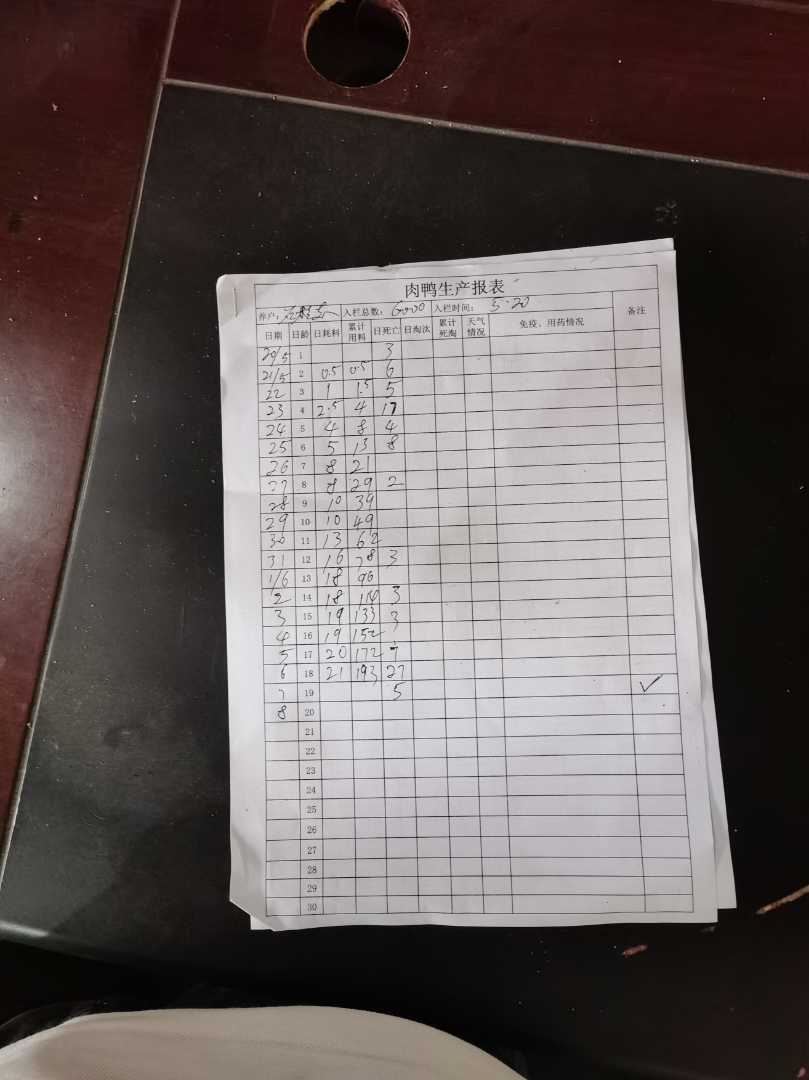 肉鸭生产报表
养户： 入栏总数：6000 入栏时间：5·20 备注
日期 日龄 日耗料 累计用料 日死亡 日淘汰 累计死淘 天气情况 免疫、用药情况
20/5 1 3
21/5 2 0.5 0.5 6
22 3 1 1.5 5
23 4 2.5 4 17
24 5 4 8 4
25 6 5 13 8
26 7 8 21
27 8 8 29 2
28 9 10 39
29 10 10 49
30 11 13 62
31 12 16 78 3
1/6 13 18 96
2 14 18 114 3
3 15 19 133 3
4 16 19 152
5 17 20 172 7
6 18 21 193 27
7 19 5 ✓
8 20
21
22
23
24
25
26
27
28
29
30